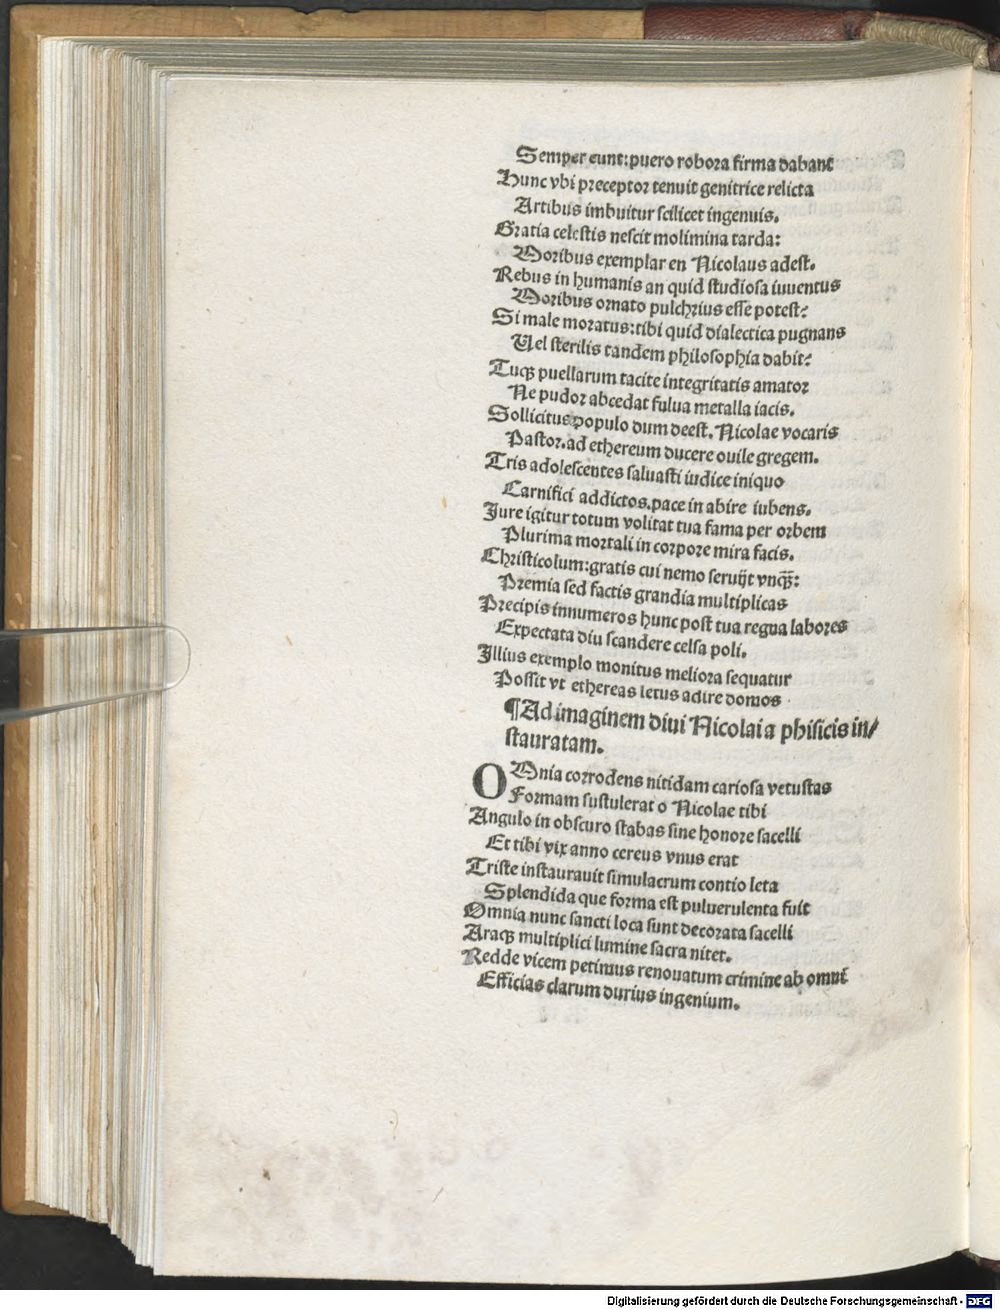 Semper eunt: puero robora firma dabant
Hunc vbi preceptor tenuit genitrice relicta
Artibus imbuitur scilicet ingenuis.
Gratia celestis nescit molimina tarda:
Moribus exemplar en Nicolaus adest.
Rebus in humanis an quid studiosa iuuentus
Moribus ornato pulchrius esse potest?
Si male moratus: tibi quid dialectica pugnans
Vel sterilis tandem philosophia dabit?
Tuqꝫ puellarum tacite integritatis amator
Ne pudor abcedat fulua metalla iacis.
Sollicitus populo dum deest. Nicolae vocaris
Pastor. ad ethereum ducere ouile gregem.
Tris adolescentes saluasti iudice iniquo
Carnifici addictos. pace in abire iubens.
Jure igitur totum volitat tua fama per orbem
Plurima mortali in corpore mira facis.
Christicolum: gratis cui nemo seruijt vnqꝫ̄:
Premia sed factis grandia multiplicas
Precipis innumeros hunc post tua regna labores
Expectata diu scandere celsa poli.
Illius exemplo monitus meliora sequatur
Possit vt ethereas letus adire domos
¶Ad imaginem diui Nicolai a phisicis in/
stauratam.
OMnia corrodens nitidam cariosa vetustas
Formam sustulerat o Nicolae tibi
Angulo in obscuro stabas sine honore sacelli
Et tibi vix anno cereus vnus erat
Triste instaurauit simulacrum contio leta
Splendida que forma est puluerulenta fuit
Omnia nunc sancti loca sunt decorata sacelli
Araqꝫ multiplici lumine sacra nitet.
Redde vicem petimus renouatum crimine ab omni
Efficias clarum durius ingenium.
Digitalisierung gefördert durch die Deutsche Forschungsgemeinschaft - DFG